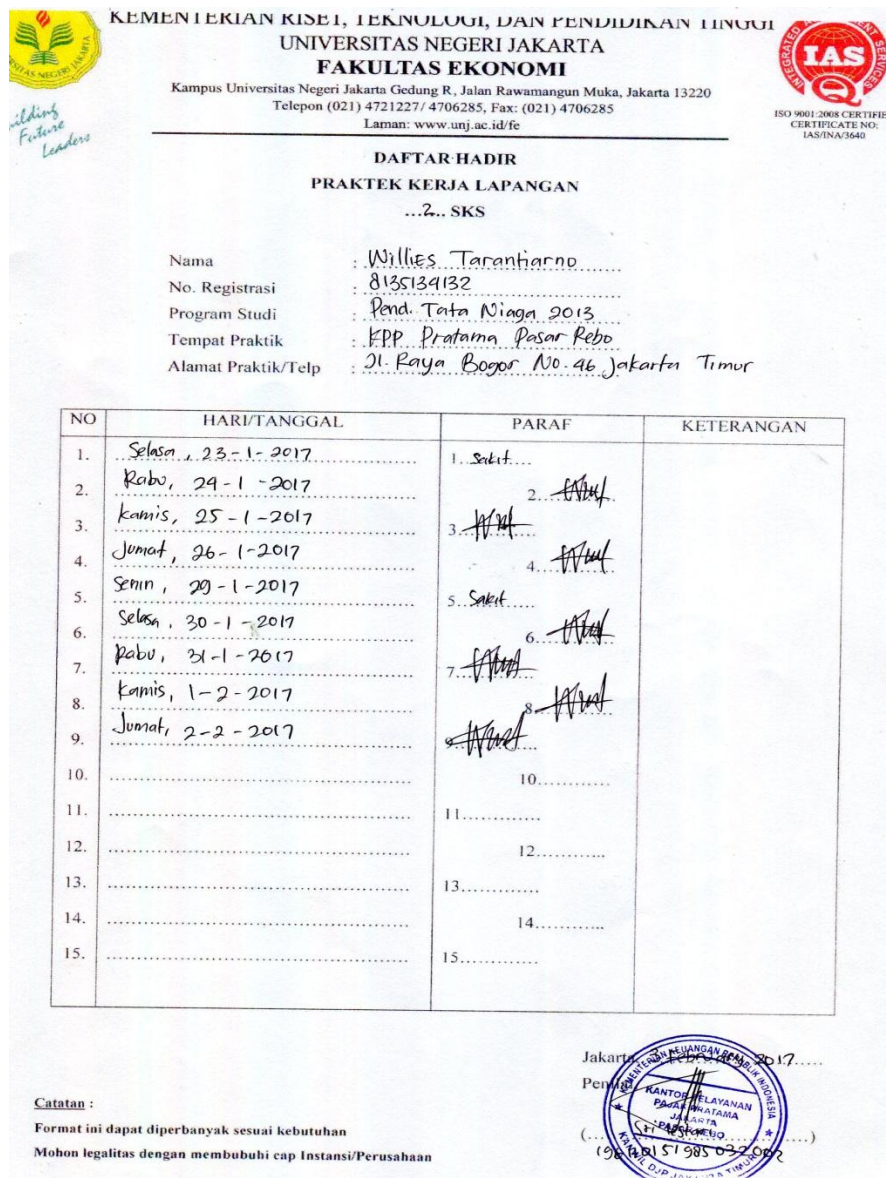 KEMENTERIAN RISET, TEKNOLOGI, DAN PENDIDIKAN TINGGI
UNIVERSITAS NEGERI JAKARTA
FAKULTAS EKONOMI
Kampus Universitas Negeri Jakarta Gedung R, Jalan Rawamangun Muka, Jakarta 13220
Telepon (021) 4721227/ 4706285, Fax: (021) 4706285
Laman: www.unj.ac.id/fe
Building
Future
Leaders
INTEGRATED SERVICES
IAS
ISO 9001:2008 CERTIFIE
CERTIFICATE NO:
IAS/INA/3640
DAFTAR HADIR
PRAKTEK KERJA LAPANGAN
...2.. SKS
Nama : Willies Tarantiarno
No. Registrasi : 8135134132
Program Studi : Pend. Tata Niaga 2013
Tempat Praktik : KPP Pratama Pasar Rebo
Alamat Praktik/Telp : Jl. Raya Bogor No. 46 Jakarta Timur
NO HARI/TANGGAL PARAF KETERANGAN
1. Selasa, 23-1-2017 1. Sakit
2. Rabu, 24-1-2017 2.
3. Kamis, 25-1-2017 3.
4. Jumat, 26-1-2017 4.
5. Senin, 29-1-2017 5. Sakit
6. Selasa, 30-1-2017 6.
7. Rabu, 31-1-2017 7.
8. Kamis, 1-2-2017 8.
9. Jumat, 2-2-2017 9.
10. 10.
11. 11.
12. 12.
13. 13.
14. 14.
15. 15.
Jakarta, 3 February 2017
KEMENTERIAN KEUANGAN REPUBLIK INDONESIA
KANTOR PELAYANAN
PAJAK PRATAMA
JAKARTA
PASAR REBO
KANWIL DJP JAKARTA TIMUR
(... Sri Lestari ...)
Catatan :
Format ini dapat diperbanyak sesuai kebutuhan
Mohon legalitas dengan membubuhi cap Instansi/Perusahaan